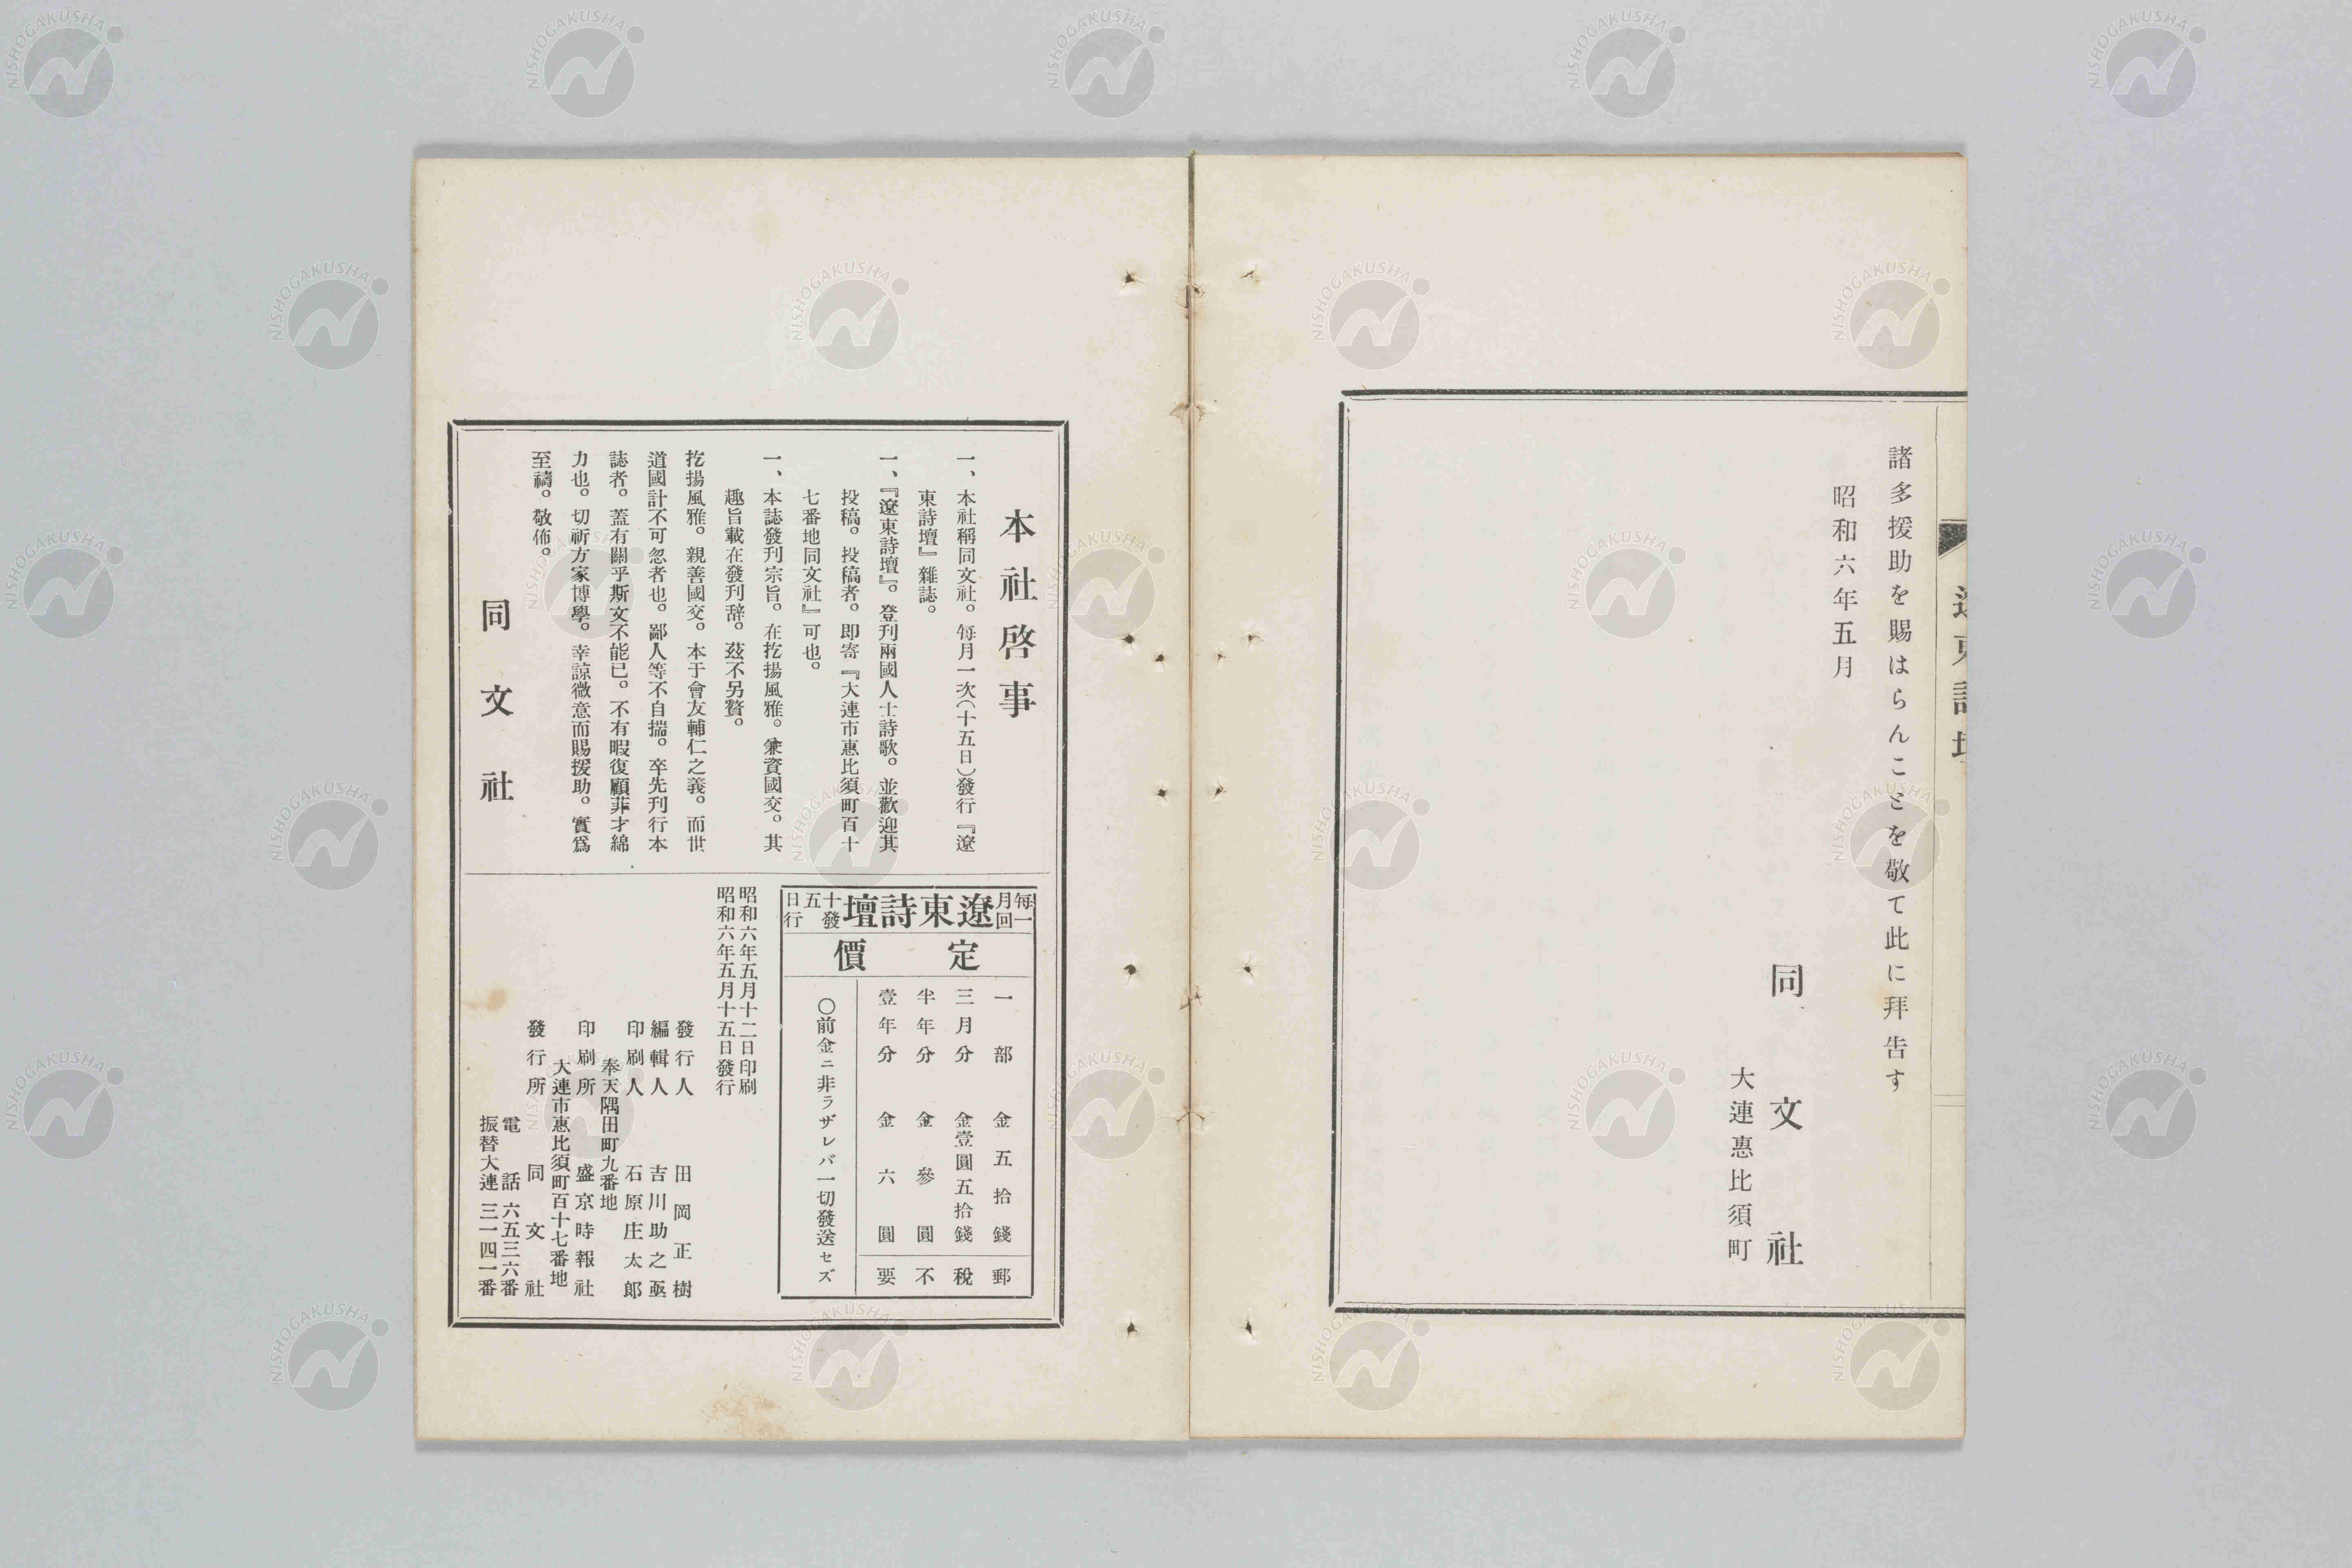 諸多援助を賜はらんことを敬て此に拜告す
昭和六年五月
同文社
大連惠比須町
本社啓事
一、本社稱同文社。每月一次(十五日)發行『遼
東詩壇』雜誌。
一、『遼東詩壇』。登刊兩國人士詩歌。並歡迎其
投稿。投稿者。即寄『大連市惠比須町百十
七番地同文社』可也。
一、本誌發刊宗旨。在扢揚風雅。兼資國交。其
趣旨載在發刊辞。茲不另贅。
扢揚風雅。親善國交。本于會友輔仁之義。而世
道國計不可忽者也。鄙人等不自揣。卒先刊行本
誌者。蓋有關乎斯文不能已。不有暇復顧菲才綿
力也。切祈方家博學。幸諒微意而賜援助。實爲
至禱。敬佈。
同文社
每月一回
遼東詩壇
十五日發行
定價
一部 金五拾錢 郵
三月分 金壹圓五拾錢 稅
半年分 金參圓 不
壹年分 金六圓 要
〇前金ニ非ラザレバ一切發送セズ
昭和六年五月十二日印刷
昭和六年五月十五日發行
發行人 田岡正樹
編輯人 吉川助之亟
印刷人 石原庄太郎
奉天隅田町九番地
印刷所 盛京時報社
大連市惠比須町百十七番地
發行所 同文社
電話六五三六番
振替大連三一四一番
NISHOGAKUSHA